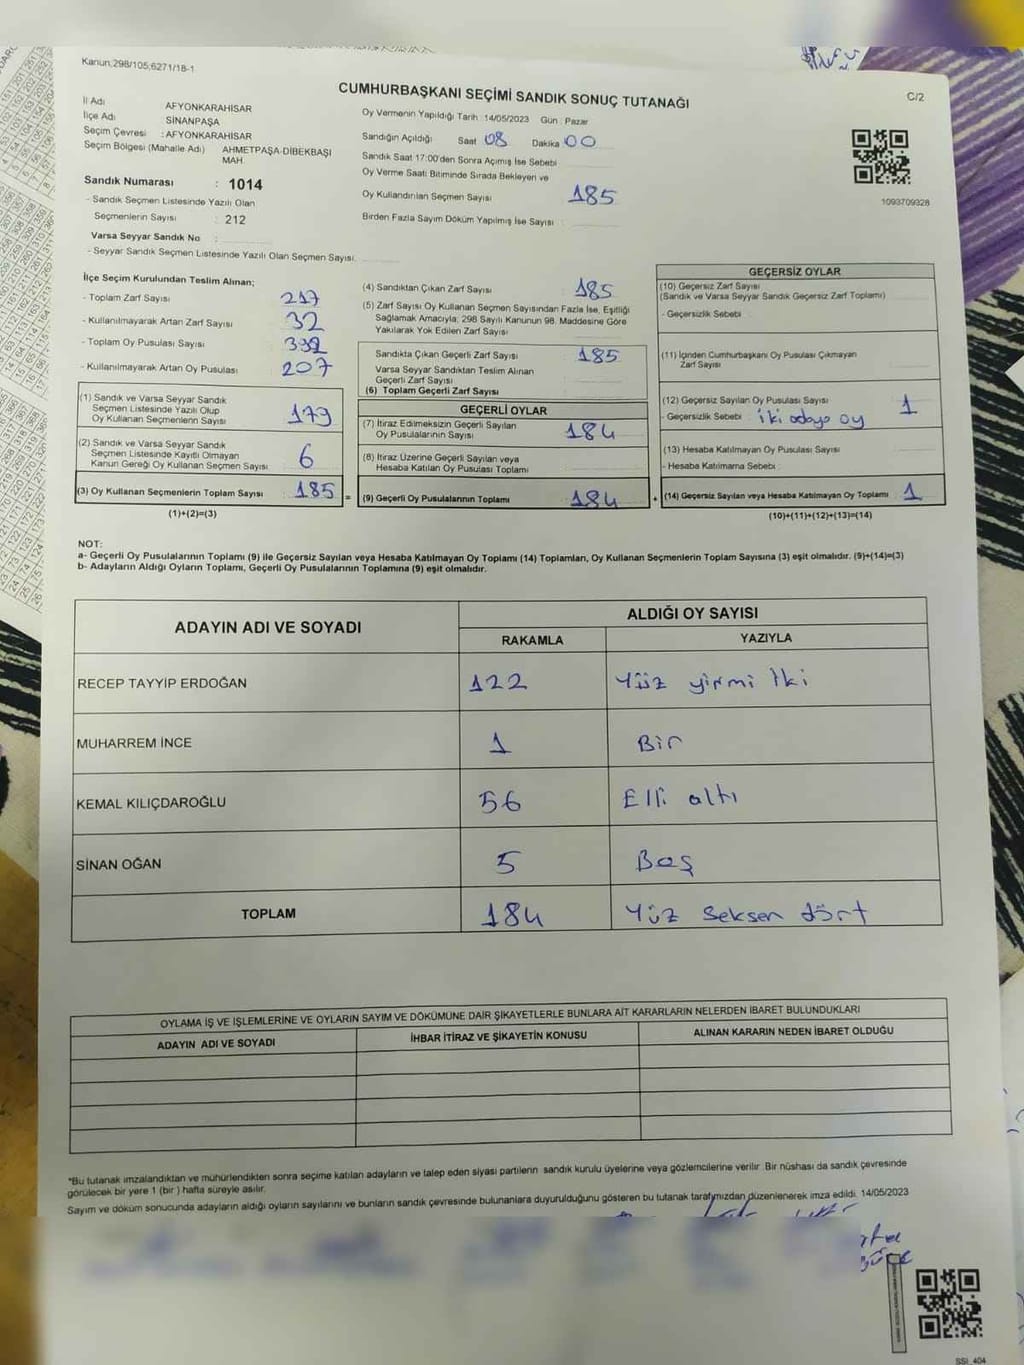 Kanun;298/105;6271/18-1
CUMHURBAŞKANI SEÇİMİ SANDIK SONUÇ TUTANAĞI
C/2
İl Adı AFYONKARAHİSAR
İlçe Adı SİNANPAŞA
Seçim Çevresi : AFYONKARAHİSAR
Seçim Bölgesi (Mahalle Adı) AHMETPAŞA-DİBEKBAŞI
MAH.
Sandık Numarası : 1014
- Sandık Seçmen Listesinde Yazılı Olan
Seçmenlerin Sayısı : 212
Varsa Seyyar Sandık No :
- Seyyar Sandık Seçmen Listesinde Yazılı Olan Seçmen Sayısı:
Oy Vermenin Yapıldığı Tarih 14/05/2023 Gün : Pazar
Sandığın Açıldığı Saat 08 Dakika 00
Sandık Saat 17:00'den Sonra Açılmış İse Sebebi
Oy Verme Saati Bitiminde Sırada Bekleyen ve
Oy Kullandırılan Seçmen Sayısı 185
Birden Fazla Sayım Döküm Yapılmış İse Sayısı :
1093709328
İlçe Seçim Kurulundan Teslim Alınan;
- Toplam Zarf Sayısı 217
- Kullanılmayarak Artan Zarf Sayısı 32
- Toplam Oy Pusulası Sayısı
- Kullanılmayarak Artan Oy Pusulası 207
(1) Sandık ve Varsa Seyyar Sandık
Seçmen Listesinde Yazılı Olup
Oy Kullanan Seçmenlerin Sayısı 179
(2) Sandık ve Varsa Seyyar Sandık
Seçmen Listesinde Kayıtlı Olmayan
Kanun Gereği Oy Kullanan Seçmen Sayısı 6
(3) Oy Kullanan Seçmenlerin Toplam Sayısı : 185 =
(1)+(2)=(3)
(4) Sandıktan Çıkan Zarf Sayısı 185
(5) Zarf Sayısı Oy Kullanan Seçmen Sayısından Fazla İse, Eşitliği
Sağlamak Amacıyla; 298 Sayılı Kanunun 98. Maddesine Göre
Yakılarak Yok Edilen Zarf Sayısı
Sandıkta Çıkan Geçerli Zarf Sayısı 185
Varsa Seyyar Sandıktan Teslim Alınan
Geçerli Zarf Sayısı
(6) Toplam Geçerli Zarf Sayısı
GEÇERLİ OYLAR
(7) İtiraz Edilmeksizin Geçerli Sayılan
Oy Pusulalarının Sayısı 184
(8) İtiraz Üzerine Geçerli Sayılan veya
Hesaba Katılan Oy Pusulası Toplamı
(9) Geçerli Oy Pusulalarının Toplamı 184 +
GEÇERSİZ OYLAR
(10) Geçersiz Zarf Sayısı
(Sandık ve Varsa Seyyar Sandık Geçersiz Zarf Toplamı)
- Geçersizlik Sebebi :
(11) İçinden Cumhurbaşkanı Oy Pusulası Çıkmayan
Zarf Sayısı
(12) Geçersiz Sayılan Oy Pusulası Sayısı 1
- Geçersizlik Sebebi : iki adaya oy
(13) Hesaba Katılmayan Oy Pusulası Sayısı
- Hesaba Katılmama Sebebi :
(14) Geçersiz Sayılan veya Hesaba Katılmayan Oy Toplamı : 1
(10)+(11)+(12)+(13)=(14)
NOT:
a- Geçerli Oy Pusulalarının Toplamı (9) ile Geçersiz Sayılan veya Hesaba Katılmayan Oy Toplamı (14) Toplamları, Oy Kullanan Seçmenlerin Toplam Sayısına (3) eşit olmalıdır. (9)+(14)=(3)
b- Adayların Aldığı Oyların Toplamı, Geçerli Oy Pusulalarının Toplamına (9) eşit olmalıdır.
ADAYIN ADI VE SOYADI
ALDIĞI OY SAYISI
RAKAMLA YAZIYLA
RECEP TAYYİP ERDOĞAN 122 Yüz yirmi İki
MUHARREM İNCE 1 Bir
KEMAL KILIÇDAROĞLU 56 Elli altı
SİNAN OĞAN 5 Beş
TOPLAM 184 Yüz Seksen dört
OYLAMA İŞ VE İŞLEMLERİNE VE OYLARIN SAYIM VE DÖKÜMÜNE DAİR ŞİKAYETLERLE BUNLARA AİT KARARLARIN NELERDEN İBARET BULUNDUKLARI
ADAYIN ADI VE SOYADI İHBAR İTİRAZ VE ŞİKAYETİN KONUSU ALINAN KARARIN NEDEN İBARET OLDUĞU
*Bu tutanak imzalandıktan ve mühürlendikten sonra seçime katılan adayların ve talep eden siyasi partilerin sandık kurulu üyelerine veya gözlemcilerine verilir. Bir nüshası da sandık çevresinde
görülecek bir yere 1 (bir) hafta süreyle asılır.
Sayım ve döküm sonucunda adayların aldığı oyların sayılarını ve bunların sandık çevresinde bulunanlara duyurulduğunu gösteren bu tutanak tarafımızdan düzenlenerek imza edildi. 14/05/2023
SSI_404